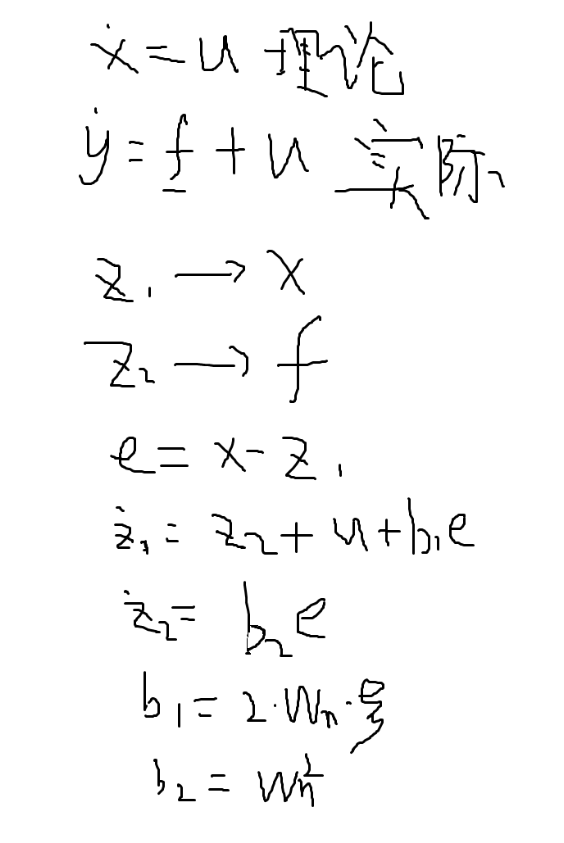 ẋ=u 理论
ẏ=f+u 实际
z₁→x
z₂→f
e=x-z₁
ż₁=z₂+u+b₁e
ż₂=b₂e
b₁=2·Wn·ξ
b₂=Wn²